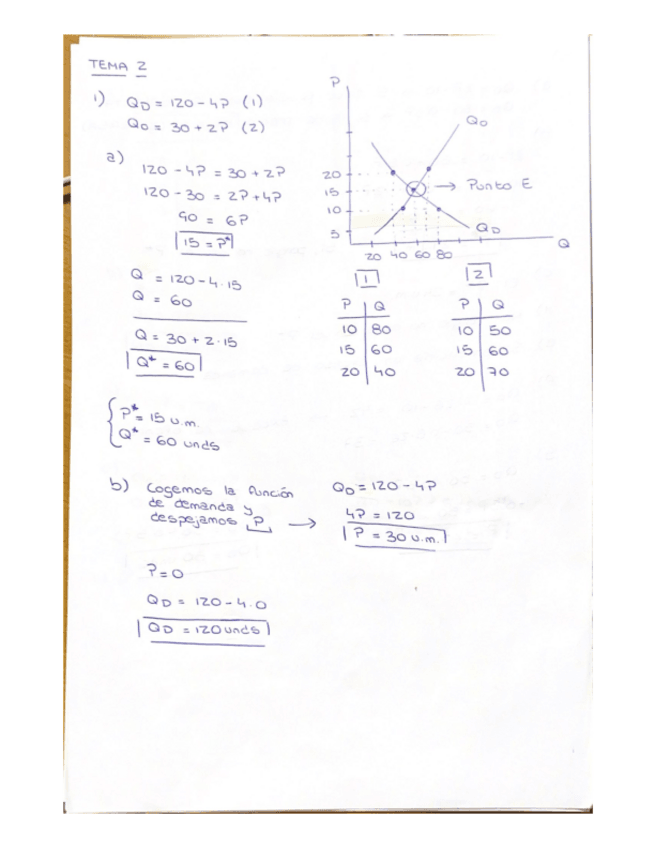 TEMA 2
1) QD = 120 - 4P (1)
QO = 30 + 2P (2)
a)
120 - 4P = 30 + 2P
120 - 30 = 2P + 4P
90 = 6P
15 = P*
Q = 120 - 4·15
Q = 60
Q = 30 + 2·15
Q* = 60
P* = 15 u.m.
Q* = 60 unds
P
QO
20
15
10
5
→ Punto E
QD
Q
20 40 60 80
1
P Q
10 80
15 60
20 40
2
P Q
10 50
15 60
20 70
b) Cogemos la función
de demanda y
despejamos P →
QD = 120 - 4P
4P = 120
P = 30 u.m.
P = 0
QD = 120 - 4·0
QD = 120 unds